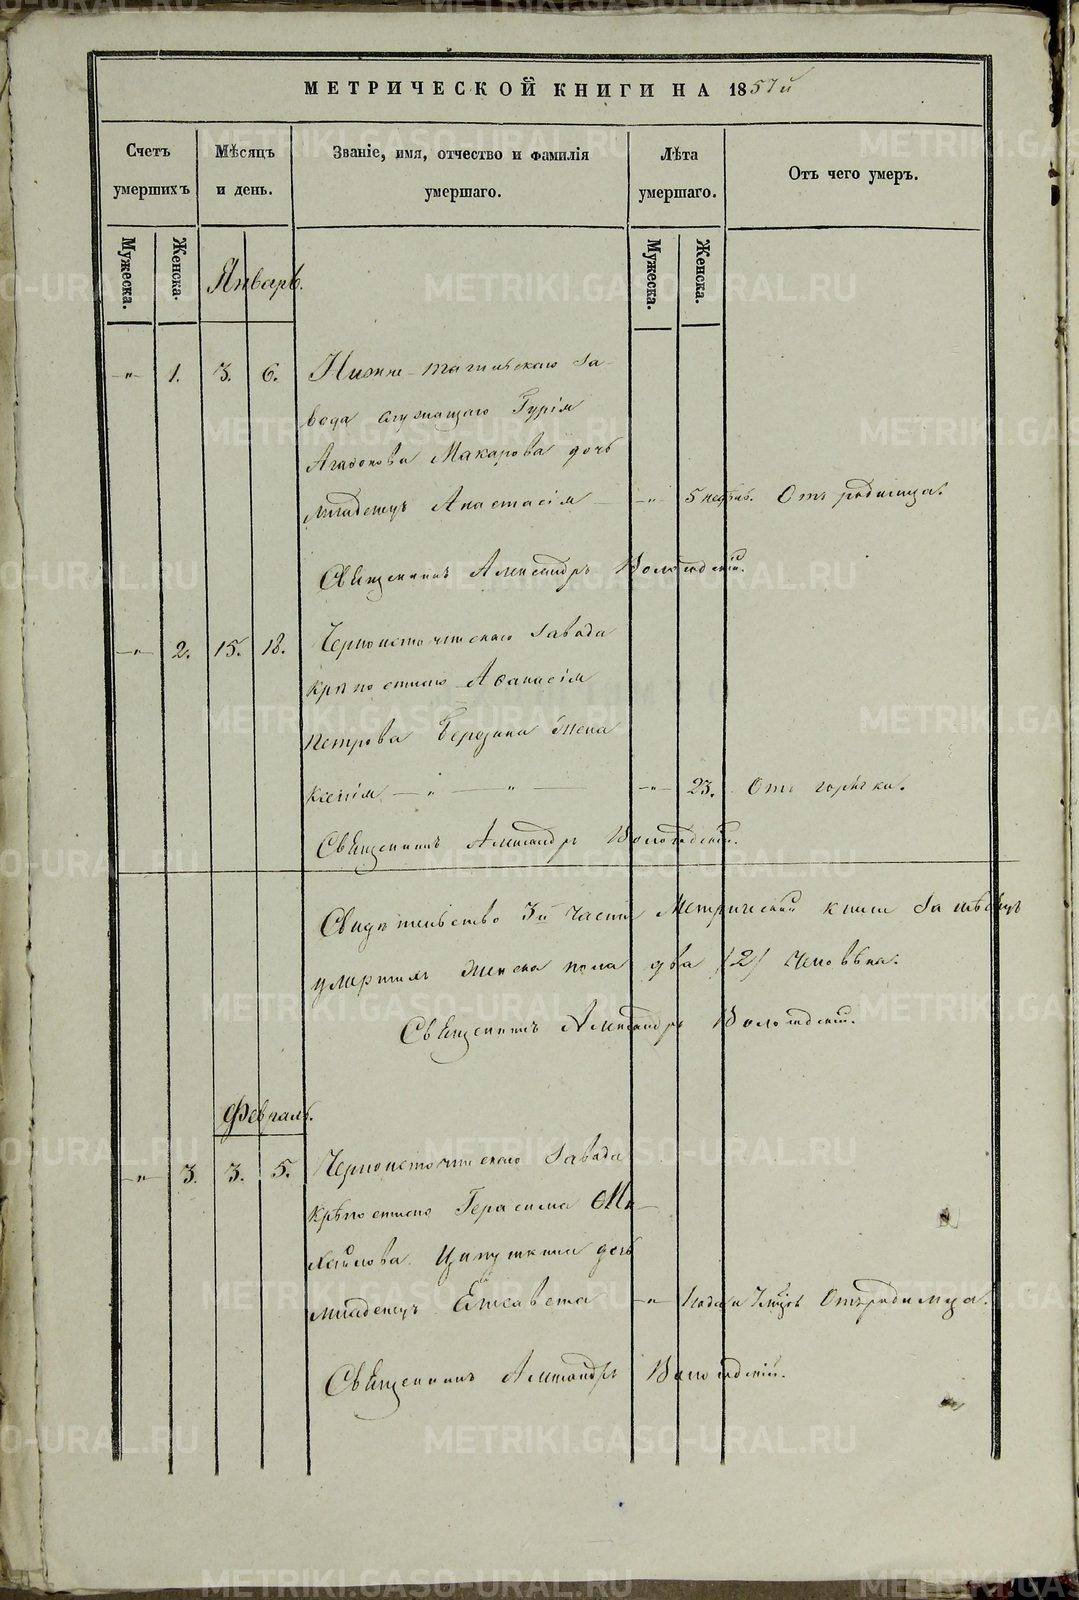 МЕТРИЧЕСКОЙ КНИГИ НА 1857й
Счетъ умершихъ
Мѣсяцъ и день.
Званіе, имя, отчество и фамилія умершаго.
Лѣта умершаго.
Отъ чего умеръ.
Мужеска. Женска. Мужеска. Женска.
Январь.
-"- 1. 3. 6. Нижне-тагильскаго за-
вода служащаго Гурія
Агафонова Макарова дочь
младенецъ Анастасія -"- 5 недѣль. Отъ родимца.
Священникъ Александръ Вологодскій.
-"- 2. 15. 18. Черноисточинскаго завода
крѣпостнаго Аѳанасія
Петрова жена
Ксенія -"- 23. Отъ горячки.
Священникъ Александръ Вологодскій.
Свидѣтельство 3й части Метрической книги за мѣсяцъ
умершихъ женска пола два /2/ человѣка.
Священникъ Александръ Вологодскій.
Февраль.
-"- 3. 3. 5. Черноисточинскаго завода
крѣпостнаго Герасима Ми-
хайлова дочь
младенецъ Елисавета -"- 1 года и Отъ родимца.
Священникъ Александръ Вологодскій.
METRIKI.GASO-URAL.RU